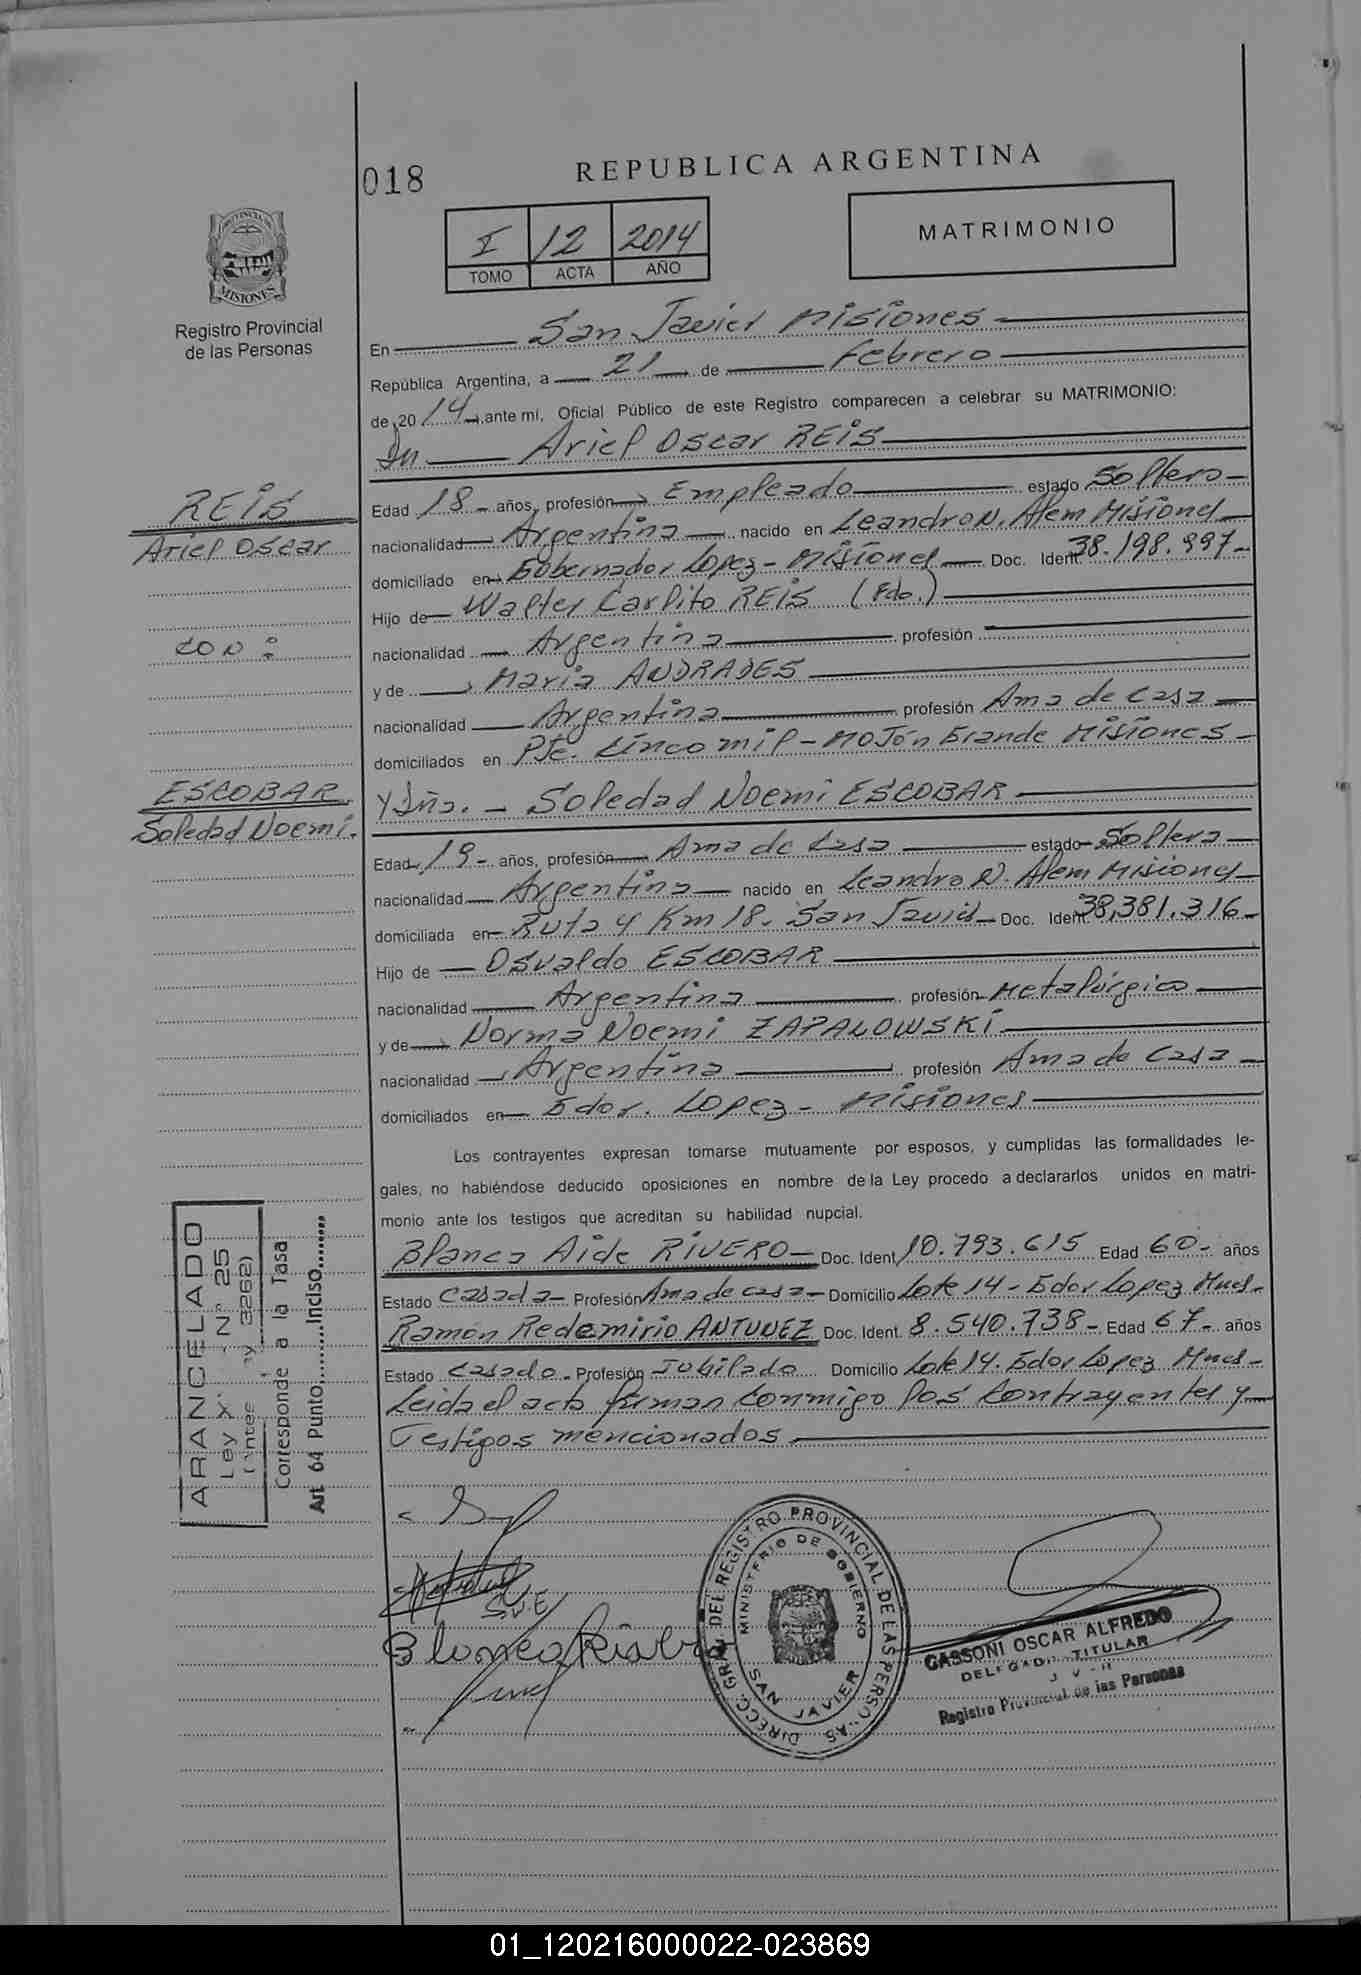 018
REPUBLICA ARGENTINA
PROVINCIA DE
MISIONES
Registro Provincial
de las Personas
I 12 2014
TOMO ACTA AÑO
MATRIMONIO
En San Javier Misiones
República Argentina, a 21 de Febrero
de 20 14, ante mí, Oficial Público de este Registro comparecen a celebrar su MATRIMONIO:
Dn Ariel Oscar REIS
REIS
Ariel Oscar
con :
ESCOBAR
Soledad Noemi.
Edad 18 - años, profesión Empleado estado Soltero
nacionalidad Argentina nacido en Leandro N. Alem Misiones
domiciliado en Gobernador Lopez - Misiones Doc. Ident. 38.198.997-
Hijo de Walter Carlito REIS (Fdo.)
nacionalidad Argentina profesión
y de Maria ANDRADES
nacionalidad Argentina profesión Ama de casa
domiciliados en Pje. Cinco mil - Mojón Grande Misiones -
Y Dña. - Soledad Noemi ESCOBAR
Edad 19 - años, profesión Ama de Casa estado Soltera
nacionalidad Argentina nacido en Leandro N. Alem Misiones
domiciliada en Ruta 4 Km 18. San Javier Doc. Ident. 38,381.316-
Hijo de Osvaldo ESCOBAR
nacionalidad Argentina profesión Metalúrgico
y de Norma Noemi ZAPALOWSKI
nacionalidad Argentina profesión Ama de Casa
domiciliados en Gdor. Lopez - Misiones
Los contrayentes expresan tomarse mutuamente por esposos, y cumplidas las formalidades le-
gales, no habiéndose deducido oposiciones en nombre de la Ley procedo a declararlos unidos en matri-
monio ante los testigos que acreditan su habilidad nupcial.
Blanca Aide RIVERO Doc. Ident. 10.793.615 Edad 60- años
Estado Casada Profesión Ama de casa Domicilio Lote 14 - Gdor Lopez Mnes-
Ramón Redemirio ANTUNEZ Doc. Ident. 8.540.738- Edad 67- años
Estado Casado Profesión Jubilado Domicilio Lote 14. Gdor Lopez Mnes-
Leida el acta firman conmigo los contrayentes y
Testigos mencionados
ARANCELADO
Ley N° 25
3262)
Corresponde a la Tasa
Art. 64 Punto........Inciso........
S.N.E
Blanca Rivero
DIRECC. GRAL. DEL REGISTRO PROVINCIAL DE LAS PERSONAS
MINISTERIO DE GOBIERNO
SAN JAVIER
GASSONI OSCAR ALFREDO
DELEGADO TITULAR
Registro Provincial de las Personas
01_120216000022-023869